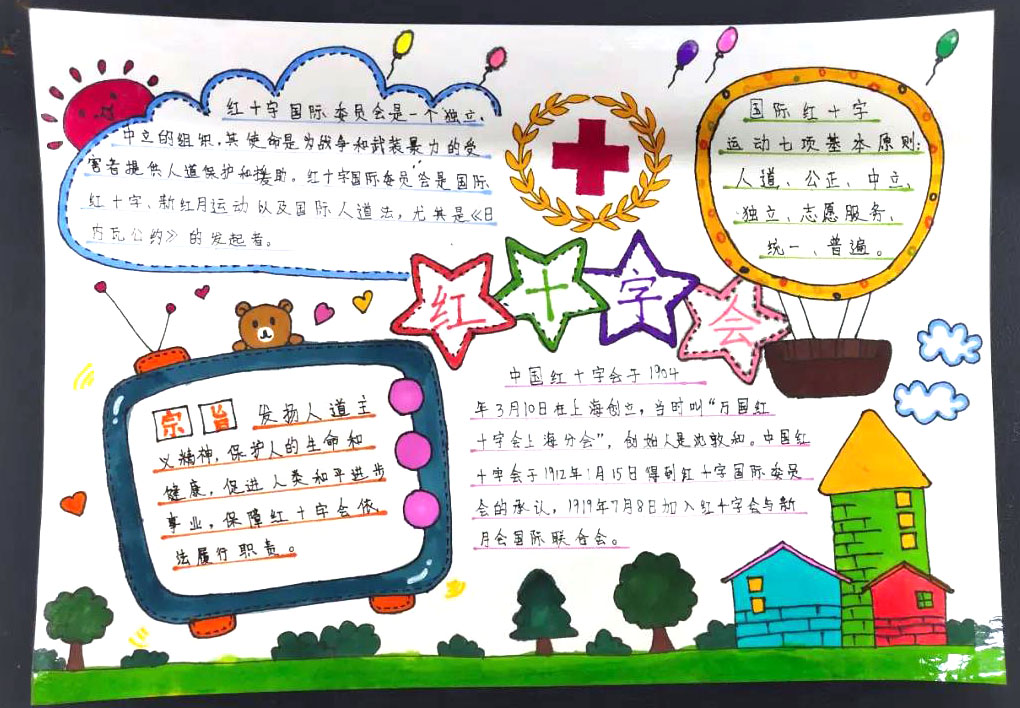 红十字国际委员会是一个独立、
中立的组织,其使命是为战争和武装暴力的受
害者提供人道保护和援助。红十字国际委员会是国际
红十字、新红月运动以及国际人道法,尤其是《日
内瓦公约》的发起者。
国际红十字
运动七项基本原则:
人道、公正、中立、
独立、志愿服务、
统一、普遍。
红十字会
宗旨 发扬人道主
义精神,保护人的生命和
健康,促进人类和平进步
事业,保障红十字会依
法履行职责。
中国红十字会于1904
年3月10日在上海创立,当时叫“万国红
十字会上海分会”,创始人是沈敦和。中国红
十字会于1912年1月15日得到红十字国际委员
会的承认,1919年7月8日加入红十字会与新
月会国际联合会。